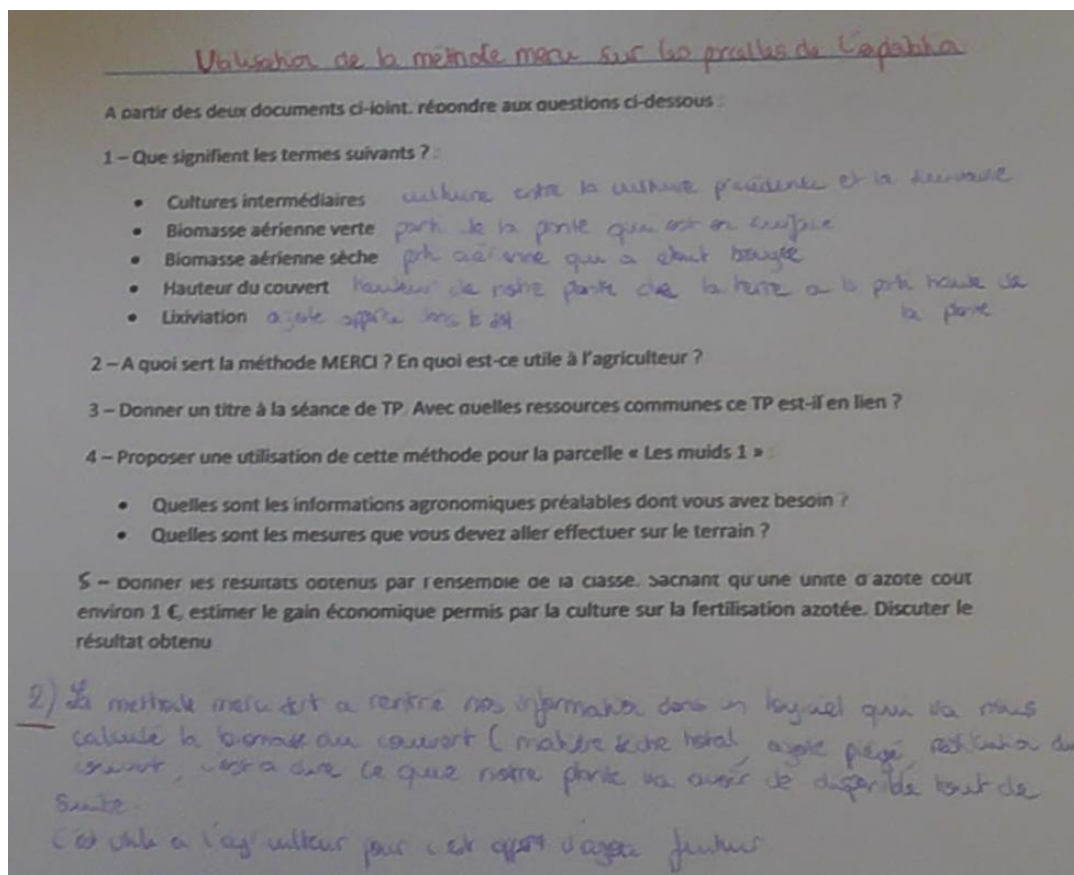 Utilisation de la méthode merci sur les parcelles de
A partir des deux documents ci-joint, répondre aux questions ci-dessous :
1 – Que signifient les termes suivants ? :
• Cultures intermédiaires culture entre la culture précédente et la suivante
• Biomasse aérienne verte parti de la plante qui est en surface
• Biomasse aérienne sèche prti aérienne qui a
• Hauteur du couvert hauteur de notre plante de la terre a la prti haute de
la plante
• Lixiviation azote dans le
2 – A quoi sert la méthode MERCI ? En quoi est-ce utile à l'agriculteur ?
3 – Donner un titre à la séance de TP. Avec quelles ressources communes ce TP est-il en lien ?
4 – Proposer une utilisation de cette méthode pour la parcelle « Les muids 1 » :
• Quelles sont les informations agronomiques préalables dont vous avez besoin ?
• Quelles sont les mesures que vous devez aller effectuer sur le terrain ?
5 – Donner les résultats obtenus par l'ensemble de la classe. Sachant qu'une unité d'azote cout
environ 1 €, estimer le gain économique permis par la culture sur la fertilisation azotée. Discuter le
résultat obtenu
2) La methode merci sert a rentré nos information dans un logiciel qui va nous
calculé la biomasse du couvert ( matière sèche total, azote piégé, restitution du
couvert, c'est a dire ce que notre plante va avoir de disponible tout de
suite.
c'est utile a l'agriculteur pour c'est apport d'azote futur